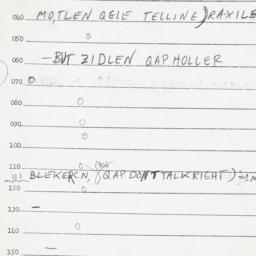 040 MOTLEN QGLE TELLING) RAXILE
050
060 —BUT ZIDLEN QAP HOLLER
070
080
090
100
110 (BOY
111 BLEKERCN, (QAP DON'T TALK RIGHT)
120 —
130
140
150 —